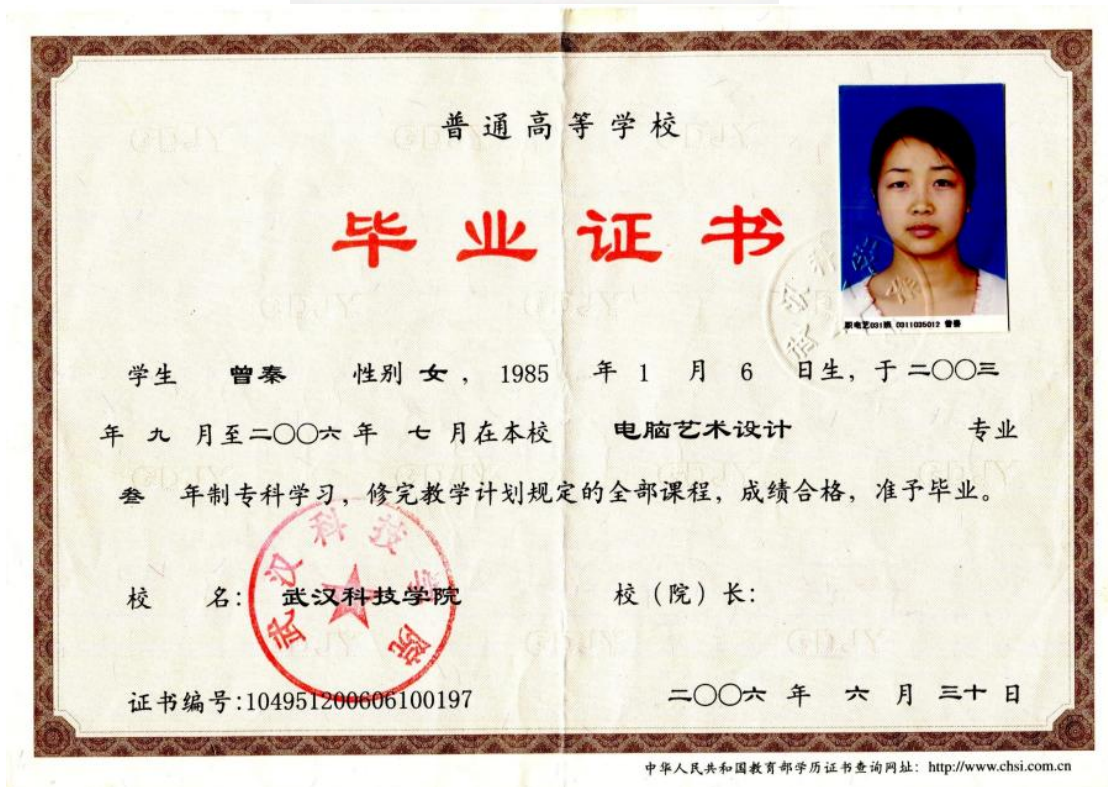 普通高等学校
毕业证书
武汉科技学院
职电艺031班 0311035012 曾秦
学生 曾秦 性别 女，1985 年 1 月 6 日生，于二〇〇三
年 九 月至二〇〇六年 七 月在本校 电脑艺术设计 专业
叁 年制专科学习，修完教学计划规定的全部课程，成绩合格，准予毕业。
武汉科技学院
校 名：武汉科技学院 校（院）长：
证书编号:104951200606100197 二〇〇六 年 六 月 三十 日
中华人民共和国教育部学历证书查询网址：http://www.chsi.com.cn